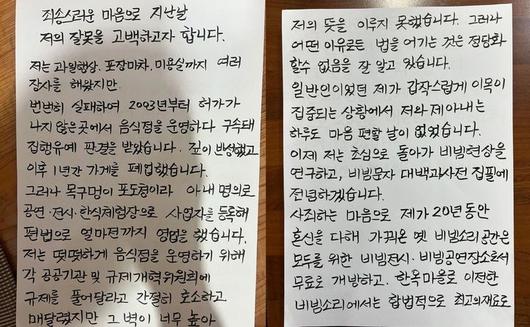 죄송스러운 마음으로 지난날
저의 잘못을 고백하고자 합니다.
저는 과일행상, 포장마차, 미용실까지 여러
장사를 해왔지만,
번번히 실패하여 2003년부터 허가가
나지 않은곳에서 음식점을 운영하다 구속돼
집행유예 판결을 받았습니다. 깊이 반성했고
이후 1년간 가게를 폐업했습니다.
그러나 목구멍이 포도청이라 아내 명의로
공연·전시·한식체험장으로 사업자를 등록해
편법으로 얼마전까지 영업을 했습니다.
저는 떳떳하게 음식점을 운영하기 위해
각 공공기관 및 규제개혁위원회에
규제를 풀어달라고 간절히 호소하고
매달렸지만 그 벽이 너무 높아
저의 뜻을 이루지 못했습니다. 그러나
어떤 이유로든 법을 어기는 것은 정당화
할수 없음을 잘 알고 있습니다.
일반인이었던 제가 갑작스럽게 이목이
집중되는 상황에서 저와 제아내는
하루도 마음 편할 날이 없었습니다.
이제 저는 초심으로 돌아가 비빔현상을
연구하고, 비빔문자 대백과사전 집필에
전념하겠습니다.
사죄하는 마음으로 제가 20년 동안
혼신을 다해 가꿔온 옛 비빔소리 공간은
모두를 위한 비빔전시·비빔공연장소로서
무료로 개방하고, 한옥마을로 이전한
비빔소리에서는 합법적으로 최고의재료로